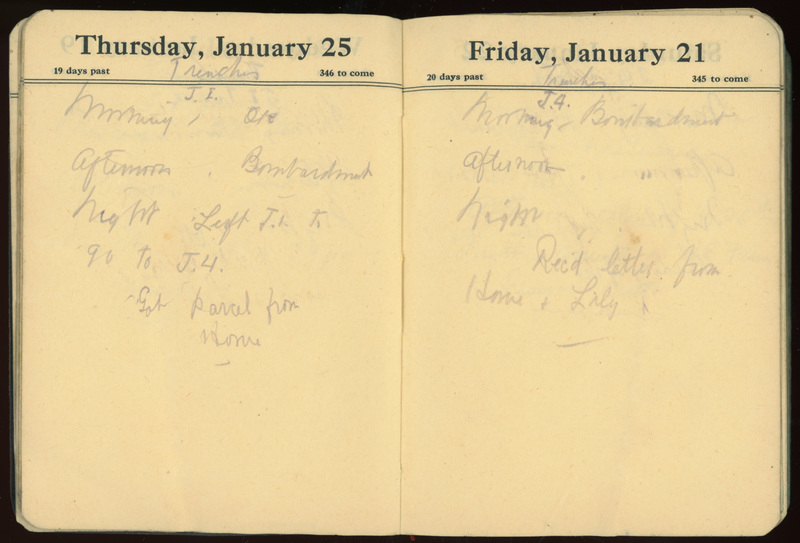 Thursday, January 25
19 days past
346 to come
Trenches
J.1.
Morning,
Afternoon . Bombardment
Night Left J.1. to
go to J.4.
Got parcel from
Home
Friday, January 21
20 days past
345 to come
Trenches
J.4.
Morning - Bombardment
Afternoon . "
Night
Rec'd letter from
Home & Lily